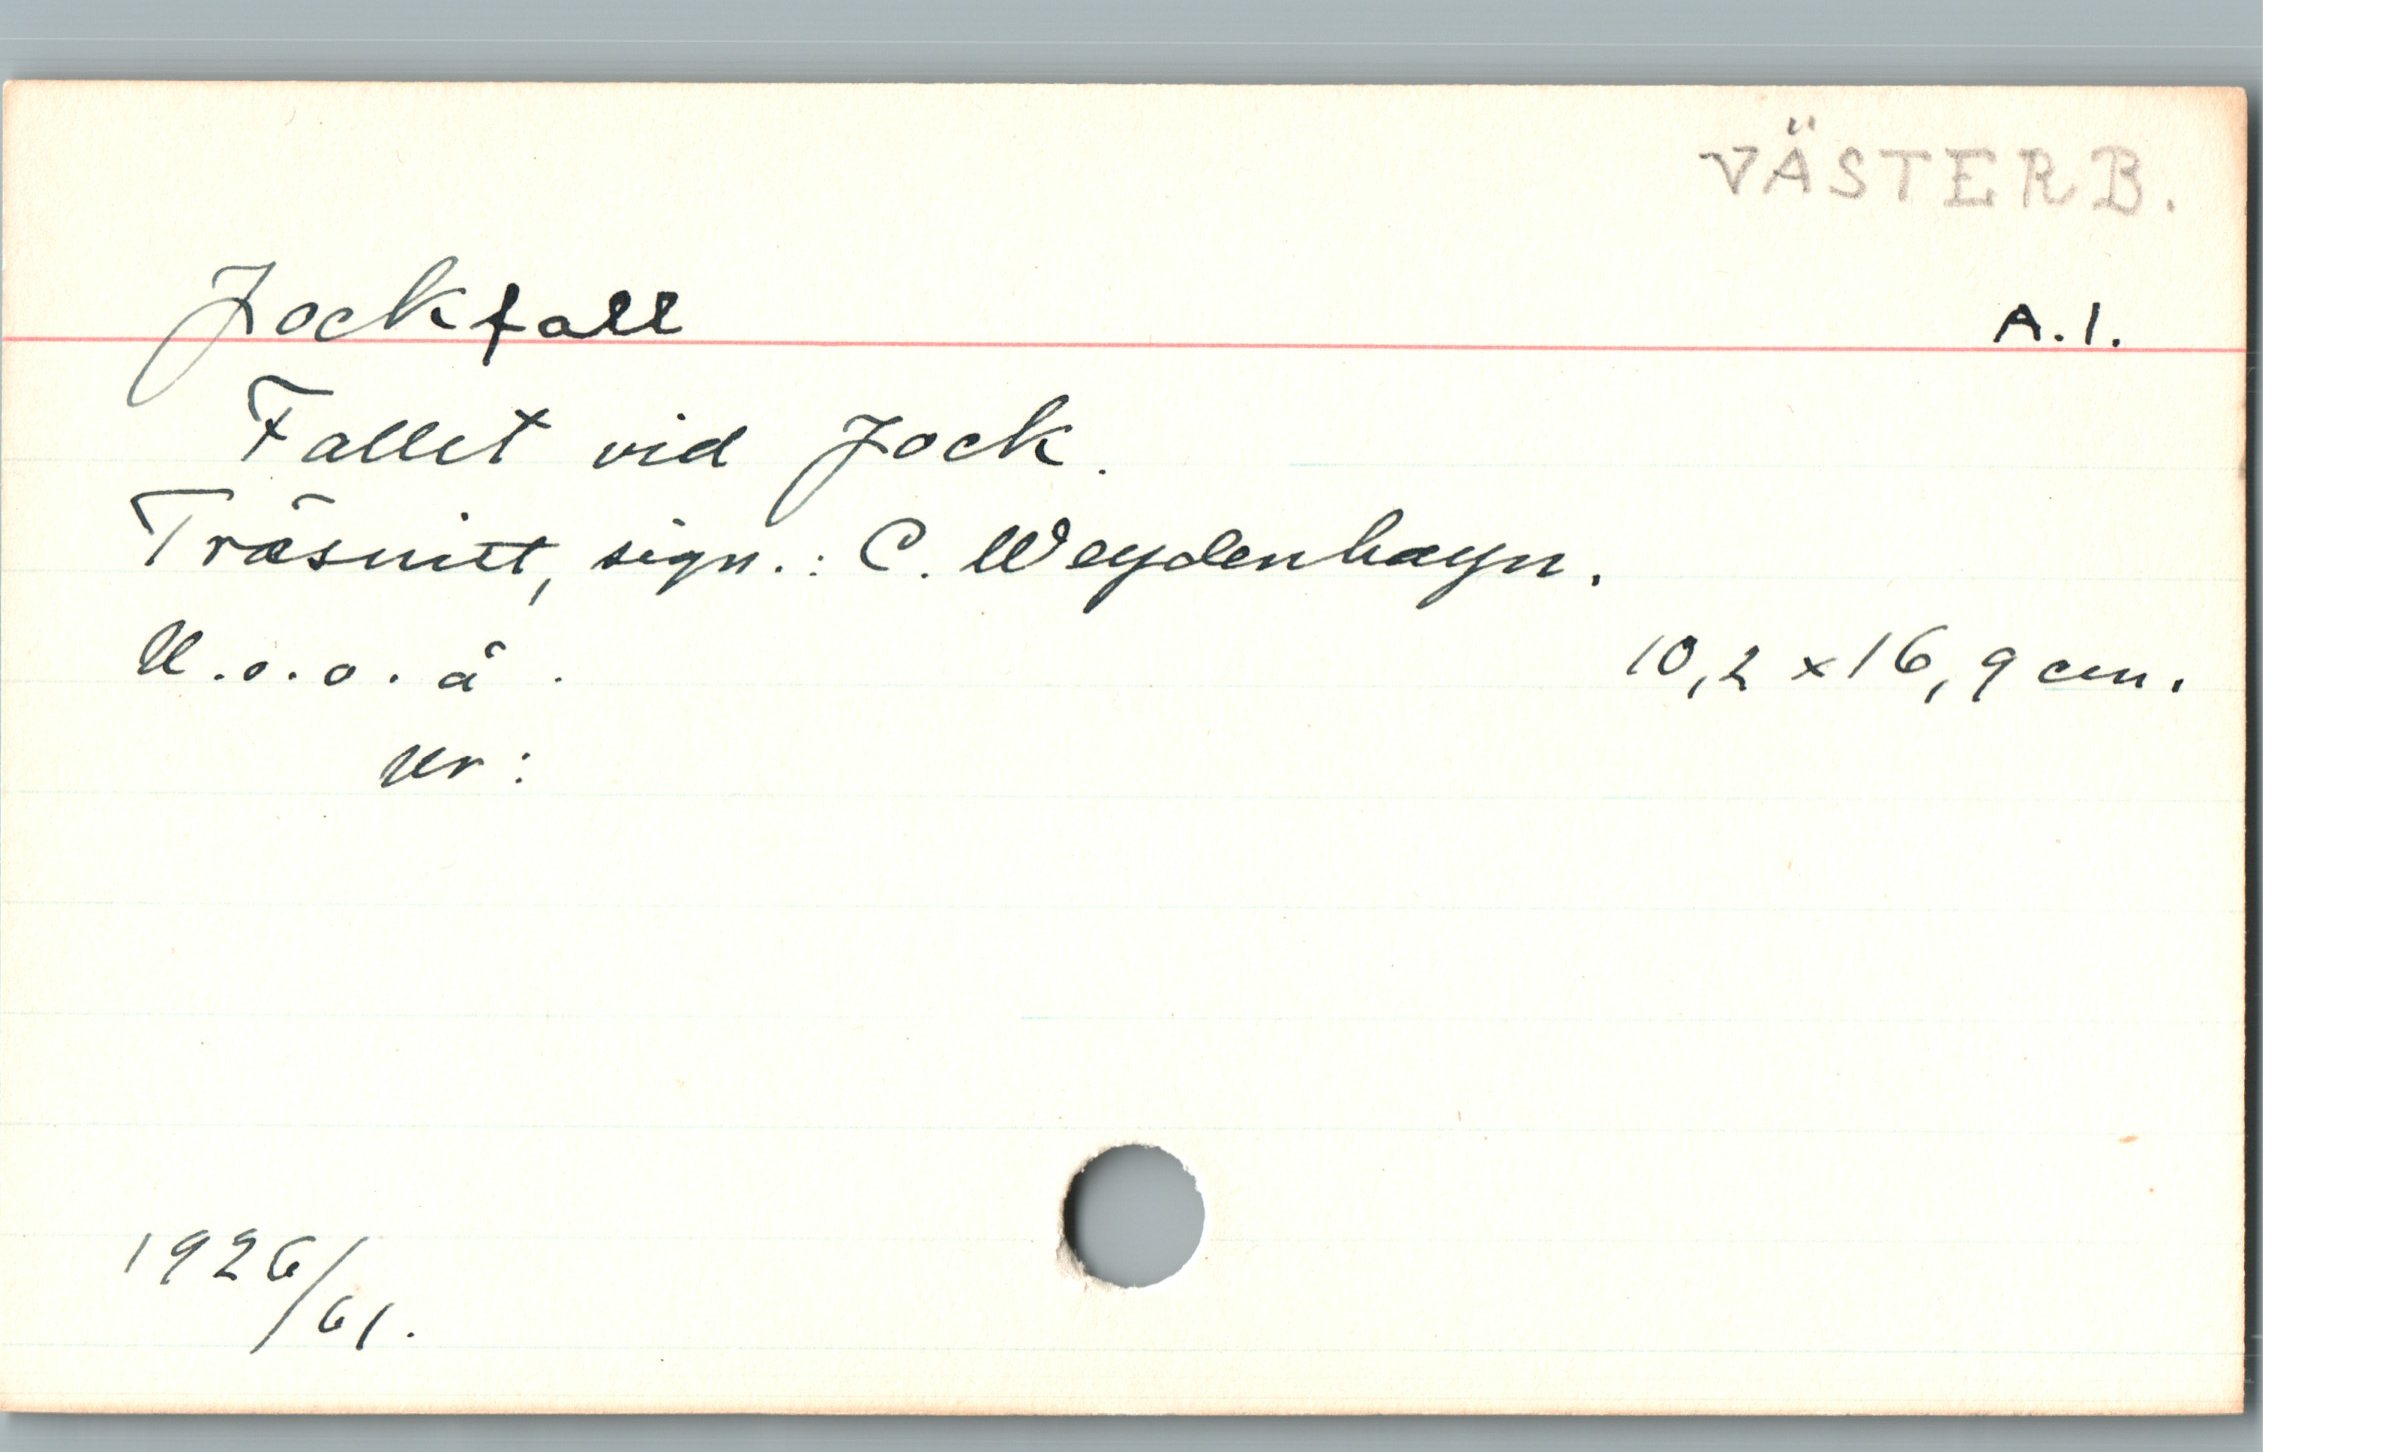 VÄSTERB.
Jockfall A.1.
Fallet vid Jock.
Träsnitt, sign.: C. Weydenhayn.
U.o.o.å. 10,2 x 16,9 cm.
Ur:
1926/61.